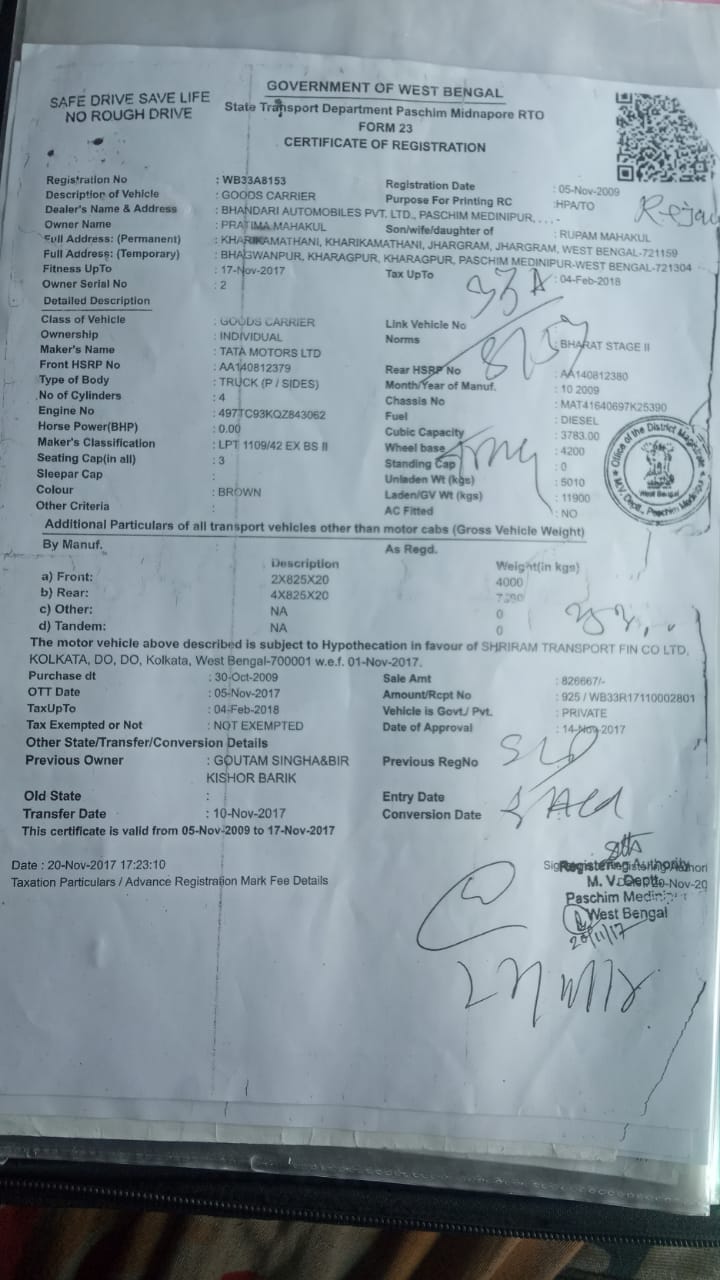 SAFE DRIVE SAVE LIFE
NO ROUGH DRIVE
GOVERNMENT OF WEST BENGAL
State Transport Department Paschim Midnapore RTO
FORM 23
CERTIFICATE OF REGISTRATION
Registration No : WB33A8153 Registration Date : 05-Nov-2009
Description of Vehicle : GOODS CARRIER Purpose For Printing RC :HPA/TO
Dealer's Name & Address : BHANDARI AUTOMOBILES PVT. LTD., PASCHIM MEDINIPUR, . . . -
Owner Name : PRATIMA MAHAKUL Son/wife/daughter of : RUPAM MAHAKUL
Full Address: (Permanent) : KHARIKAMATHANI, KHARIKAMATHANI, JHARGRAM, JHARGRAM, WEST BENGAL-721159
Full Address: (Temporary) : BHAGWANPUR, KHARAGPUR, KHARAGPUR, PASCHIM MEDINIPUR-WEST BENGAL-721304
Fitness UpTo : 17-Nov-2017 Tax UpTo : 04-Feb-2018
Owner Serial No : 2
Detailed Description
Class of Vehicle : GOODS CARRIER Link Vehicle No
Ownership : INDIVIDUAL Norms : BHARAT STAGE II
Maker's Name : TATA MOTORS LTD
Front HSRP No : AA140812379 Rear HSRP No : AA140812380
Type of Body : TRUCK (P / SIDES) Month/Year of Manuf. : 10 2009
No of Cylinders : 4 Chassis No : MAT41640697K25390
Engine No : 497TC93KQZ843062 Fuel : DIESEL
Horse Power(BHP) : 0.00 Cubic Capacity : 3783.00
Maker's Classification : LPT 1109/42 EX BS II Wheel base : 4200
Seating Cap(in all) : 3 Standing Cap : 0
Sleepar Cap : Unladen Wt (kgs) : 5010
Colour : BROWN Laden/GV Wt (kgs) : 11900
Other Criteria : AC Fitted : NO
Office of the District Magistrate
West Bengal
M.V. Deptt., Paschim Medinipur
Additional Particulars of all transport vehicles other than motor cabs (Gross Vehicle Weight)
By Manuf. As Regd.
Description Weight(in kgs)
a) Front: 2X825X20 4000
b) Rear: 4X825X20
c) Other: NA 0
d) Tandem: NA 0
The motor vehicle above described is subject to Hypothecation in favour of SHRIRAM TRANSPORT FIN CO LTD,
KOLKATA, DO, DO, Kolkata, West Bengal-700001 w.e.f. 01-Nov-2017.
Purchase dt : 30-Oct-2009 Sale Amt : 826667/-
OTT Date : 05-Nov-2017 Amount/Rcpt No : 925 / WB33R17110002801
TaxUpTo : 04-Feb-2018 Vehicle is Govt./ Pvt. : PRIVATE
Tax Exempted or Not : NOT EXEMPTED Date of Approval : 14-Nov-2017
Other State/Transfer/Conversion Details
Previous Owner : GOUTAM SINGHA&BIR Previous RegNo
KISHOR BARIK
Old State : Entry Date
Transfer Date : 10-Nov-2017 Conversion Date
This certificate is valid from 05-Nov-2009 to 17-Nov-2017
Date : 20-Nov-2017 17:23:10
Taxation Particulars / Advance Registration Mark Fee Details
Registering Authority
M. V. Deptt.
Paschim Medinipur
West Bengal
20/11/17